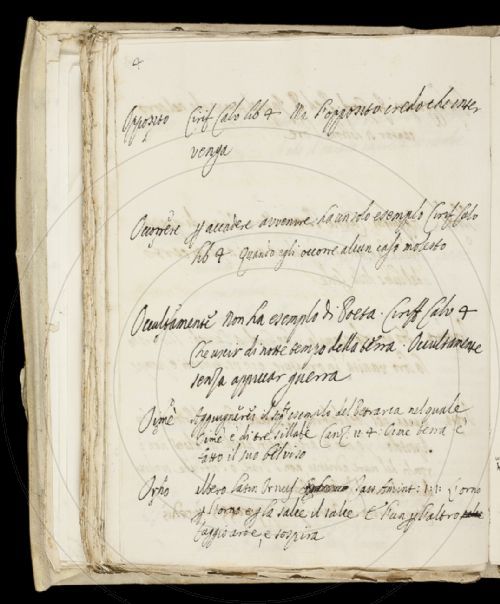 4
Opposito Cirif Calv lib 4 Ma l'opposito credo che inter
venga
Occorrere p accadere avvenire ha un solo esempio Ciriff Calv
lib 4 Quando egli occorre alcun caso molesto
Occultamente Non ha esempio di Poeta. Ciriff Calv 4
Che uscir di notte tempo della terra. Occultamente
senza appiccar guerra
Oimè esempio del Petrarca nel quale
Oime è di tre sillabe Canz. Oime terra è
fatto il suo bel viso
Orno albero latin. Ornus Tass. Amint: 1:1: L'orno
p l'orno e p la salce il salce E l'un p l'altro
faggio arde, e sospira